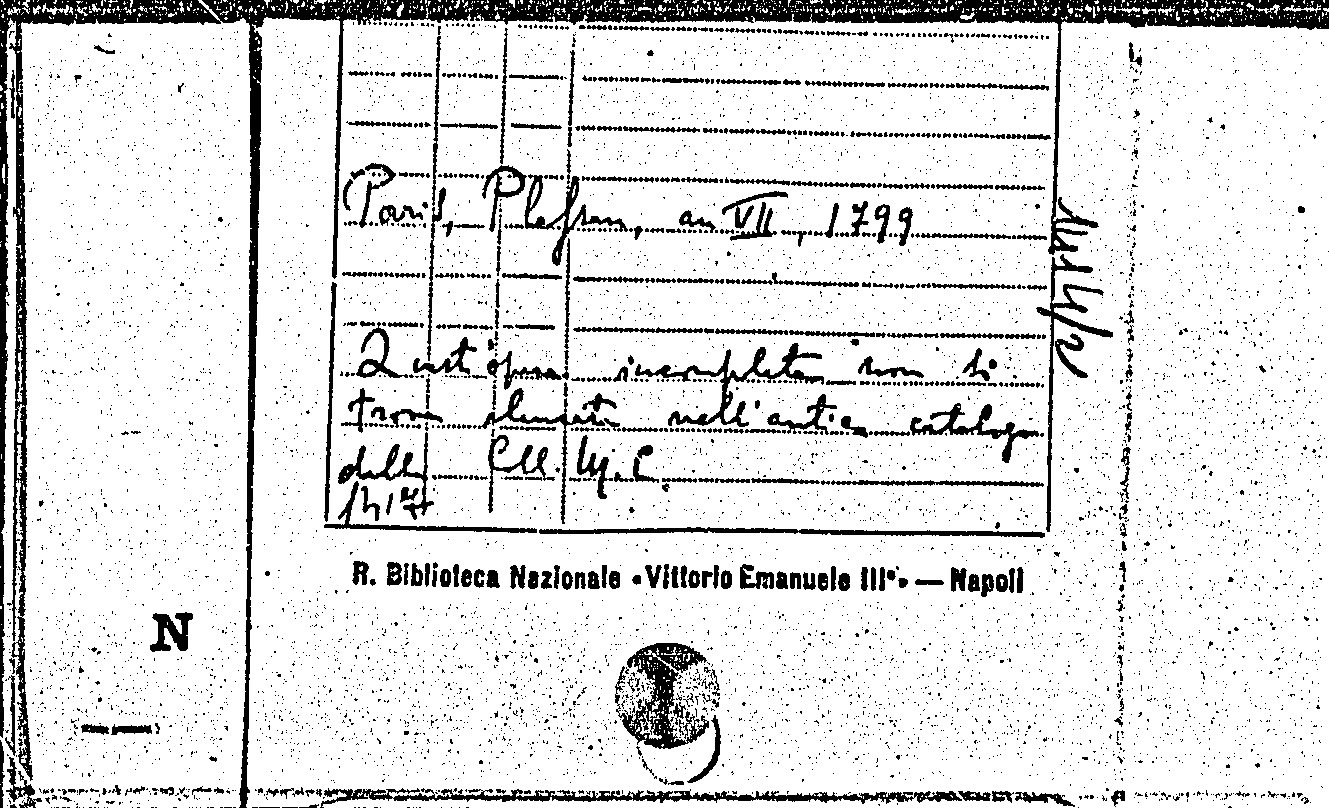 Paris, Plassan, an VII, 1799
Quest'opera incompleta non si
trova elencata nell'antico catalogo
della Coll.
R. Biblioteca Nazionale «Vittorio Emanuele III°» — Napoli
N